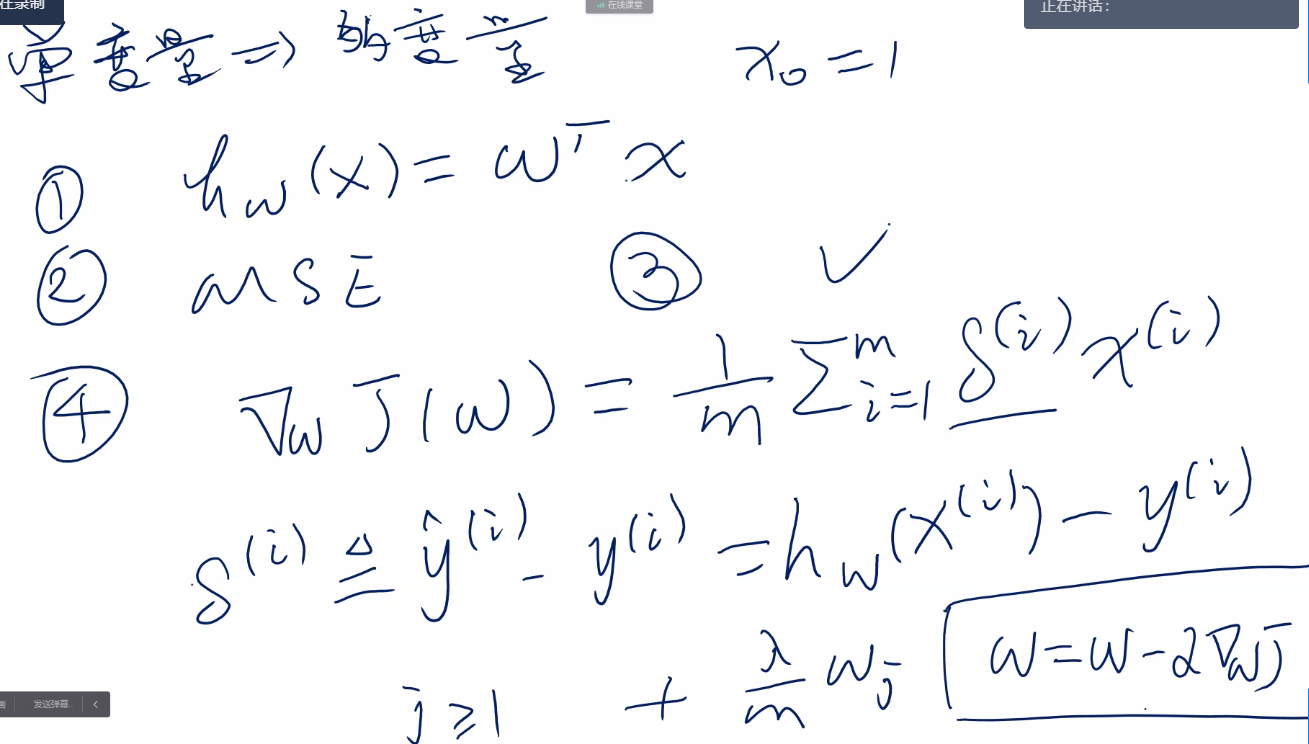 在录制
在线课堂
正在讲话:
单变量 => 多变量 x₀ = 1
① h_w(x) = w^T x
② MSE ③ ✓
④ ∇_w J(w) = 1/m ∑_{i=1}^m δ^(i) x^(i)
δ^(i) ≜ ŷ^(i) - y^(i) = h_w(x^(i)) - y^(i)
j ≥ 1 + λ/m w_j w = w - α∇_w J
发送弹幕..